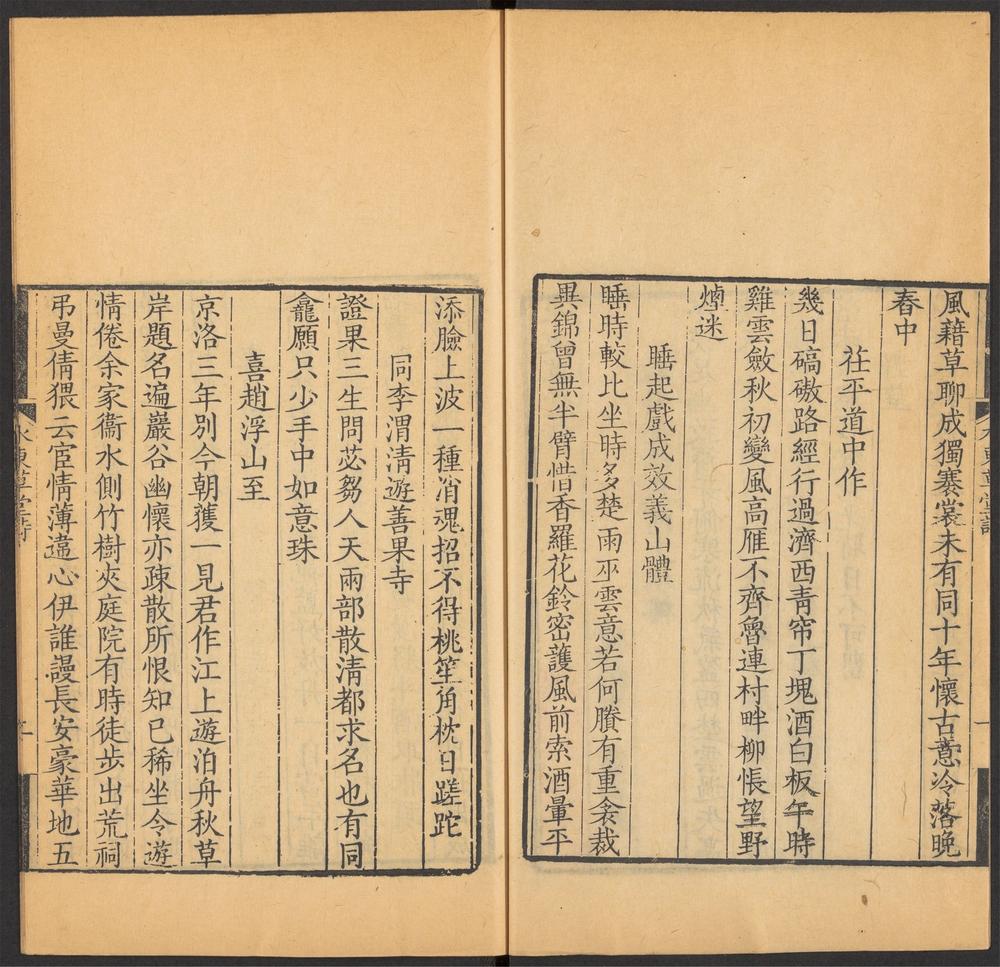 風藉草聊成獨褰裳未有同十年懷古意冷落晚
春中
茌平道中作
幾日碻磝路經行過濟西青帘丁塊酒白板午時
雞雲斂秋初變風高雁不齊魯連村畔柳悵望野
煙迷
睡起戲成效義山體
睡時較比坐時多楚雨巫雲意若何賸有重衾裁
異錦曾無半臂惜香羅花鈴密護風前索酒暈平
添臉上波一種消魂招不得桃笙角枕日蹉跎
同李渭清遊善果寺
證果三生問苾芻人天兩部散清都求名也有同
龕願只少手中如意珠
喜趙浮山至
京洛三年別今朝蒦一見君作江上遊泊舟秋草
岸題名遍巖谷幽懷亦疎散所恨知已稀坐令遊
情倦余家衞水側竹樹夾庭院有時徒步出荒祠
弔曼倩猥云宦情薄違心伊誰謾長安豪華地五